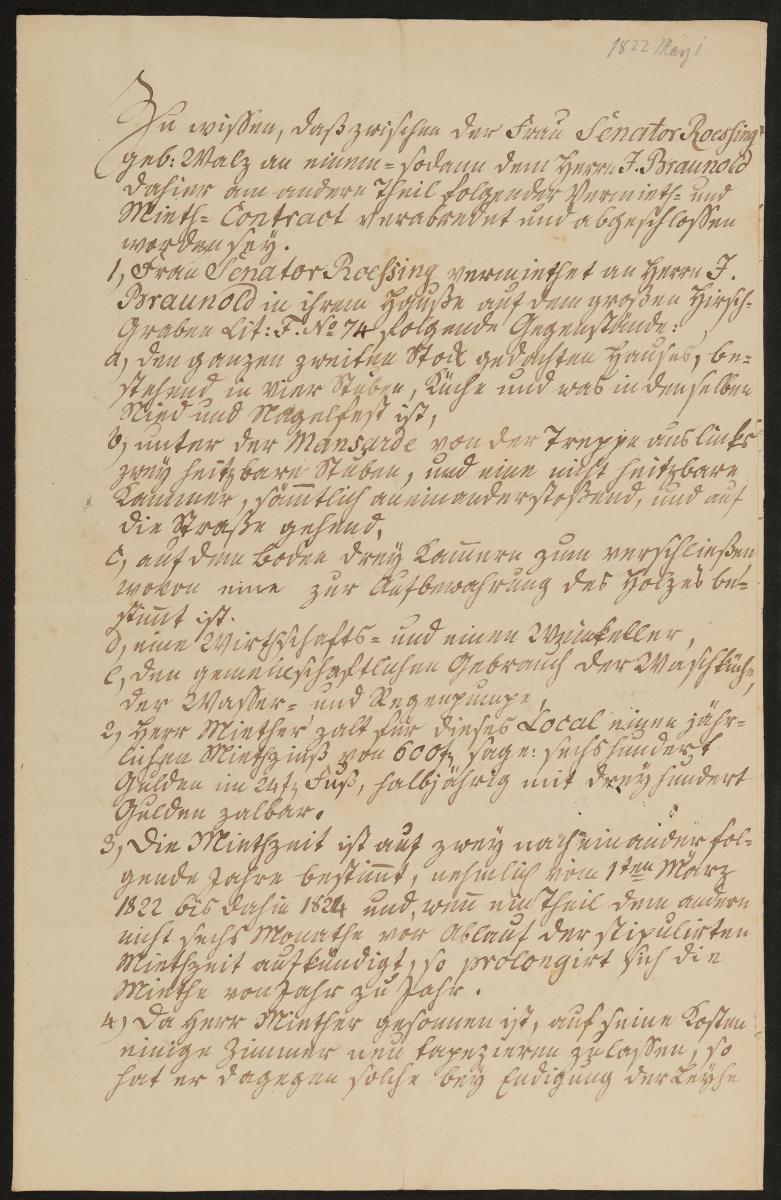 1822 März 1
Zu wissen, daß zwischen der Frau Senator Roessing
geb: Walz an einem= sodann dem Herrn J. Braunold
dahier am andern Theil folgender Vermieth= und
Mieth= Contract verabredet und abgeschlossen
worden sey.
1, Frau Senator Roessing vermiethet an Herrn J.
Braunold in ihrem Hauße auf dem großen Hirsch=
Graben Lit: F. No 74 folgende Gegenstände:
a, den ganzen zweiten Stock gedachten Hauses, be=
stehend in vier Stuben, Küche und was in denselben
Nied und Nagelfest ist,
b, unter der Mansarde von der Treppe aus links
zwey heitzbare Stuben, und eine nicht heitzbare
Kammer, sämmtlich aneinanderstoßend, und auf
die Straße gehend,
c, auf dem Boden drey Kam̄ern zum verschließen
wovon eine zur Aufbewahrung des Holzes be=
stim̄t ist.
d, eine Wirthschafts= und einen Weinkeller,
e, den gemeinschaftlichen Gebrauch der Waschküche,
der Wasser= und Regenpumpe,
2, Herr Miether zalt für dieses Local einen jähr=
lichen Miethzinß von 600 f, sage: sechshundert
Gulden im 24 f Fuß, halbjährig mit dreyhundert
Gulden zalbar.
3, Die Miethzeit ist auf zwey nach einander fol=
gende Jahre bestim̄t, nehmlich vom 1ten März
1822 bis dahin 1824 und, wen̄ ein Theil dem andern
nicht sechs Monathe vor Ablauf der stipulirten
Miethzeit aufkündigt, so prolongirt sich die
Miethe von Jahr zu Jahr.
4, Da Herr Miether gesonnen ist, auf seine Kosten
einige Zimmer neu tapezieren zu lassen, so
hat er dagegen solche bey Endigung der Leyhe